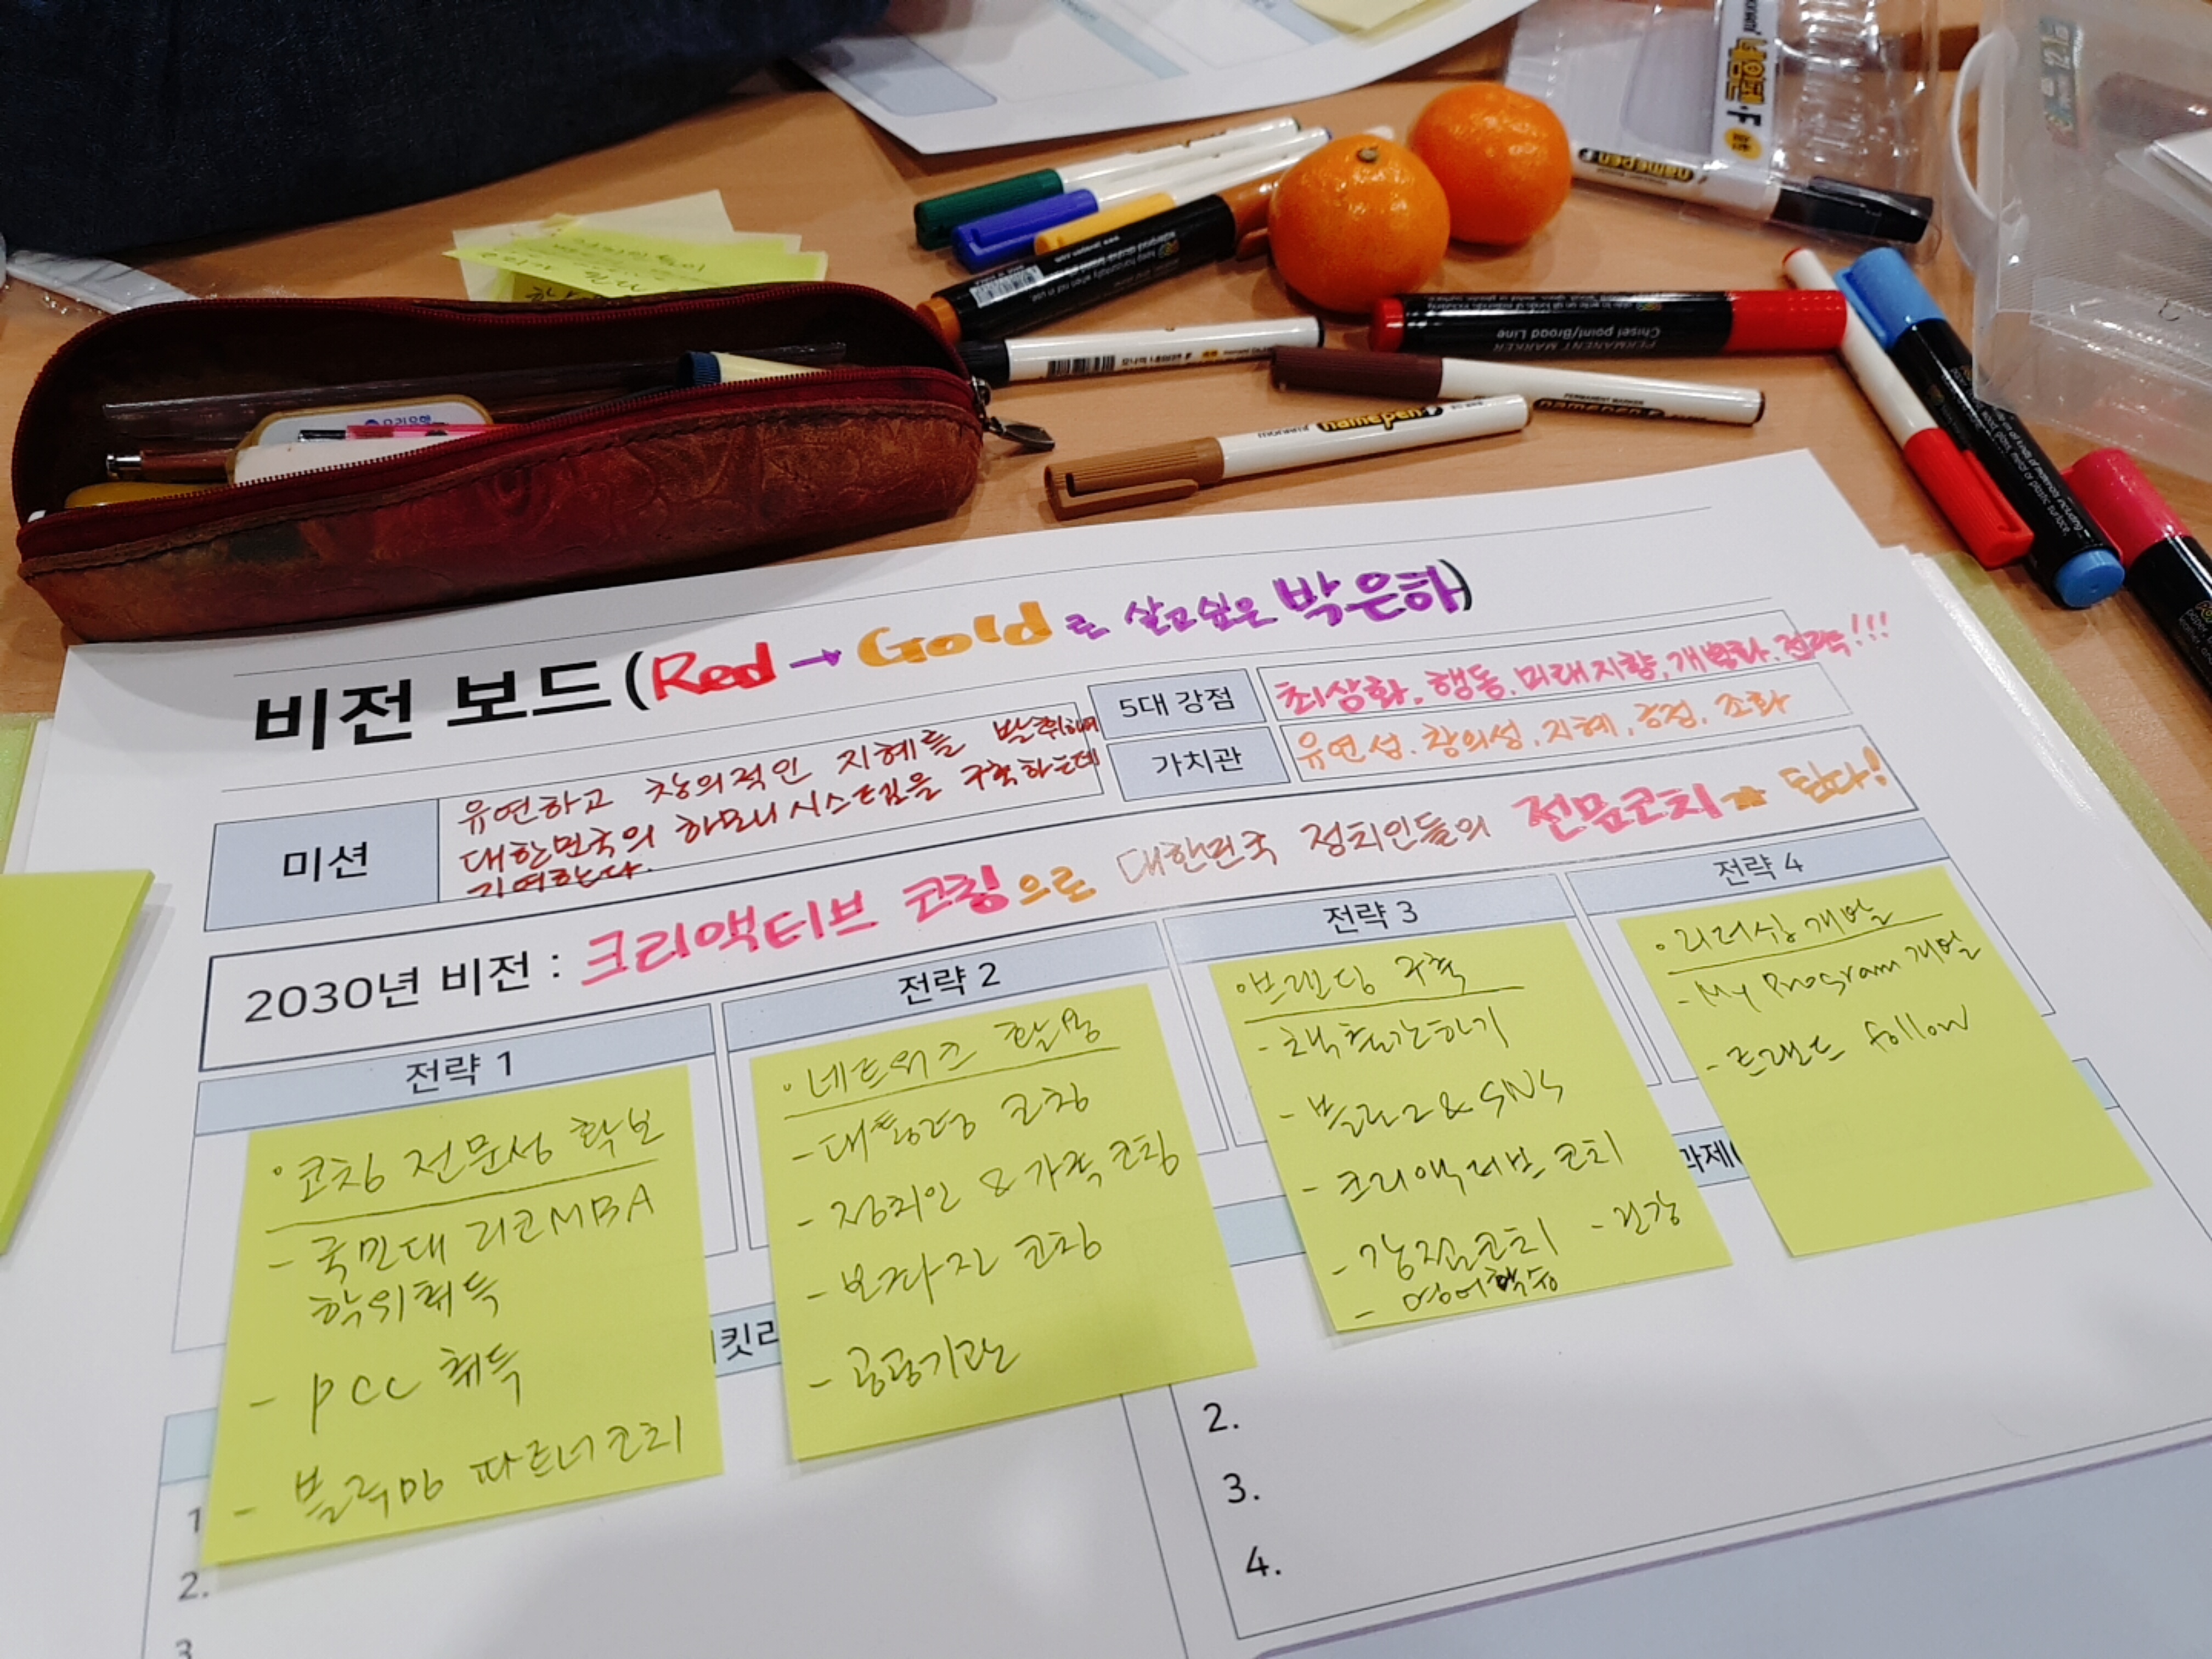 비전 보드(Red → Gold로 살고싶은 박은하)
미션
유연하고 창의적인 지혜를 발휘하여
대한민국의 하모니 시스템을 구축하는데
기여한다.
5대 강점
최상화, 행동, 미래지향, 개별화, 전략!!!
가치관
유연성, 창의성, 지혜, 긍정, 조화
2030년 비전 : 크리액티브 코칭으로 대한민국 정치인들의 전문코치가 된다!
전략 1
• 코칭 전문성 확보
- 국민대 리코MBA
학위취득
- PCC 취득
- 블루밍 파트너코치
전략 2
• 네트워크 활용
- 대통령 코칭
- 정치인 & 가족 코칭
- 보좌진 코칭
- 공공기관
전략 3
• 브랜딩 구축
- 책출간하기
- 블로그 & SNS
- 크리액티브 코치
- 강점코치 - 건강
- 영어학습
전략 4
• 리더십 개발
- My Program 개발
- 트랜드 follow
킷리
과제(
1
2.
3
2.
3.
4.
PERMANENT MARKER
Chisel point/Broad Line
monami namepen F
PERMANENT MARKER
namepen F
namepen
우리은행